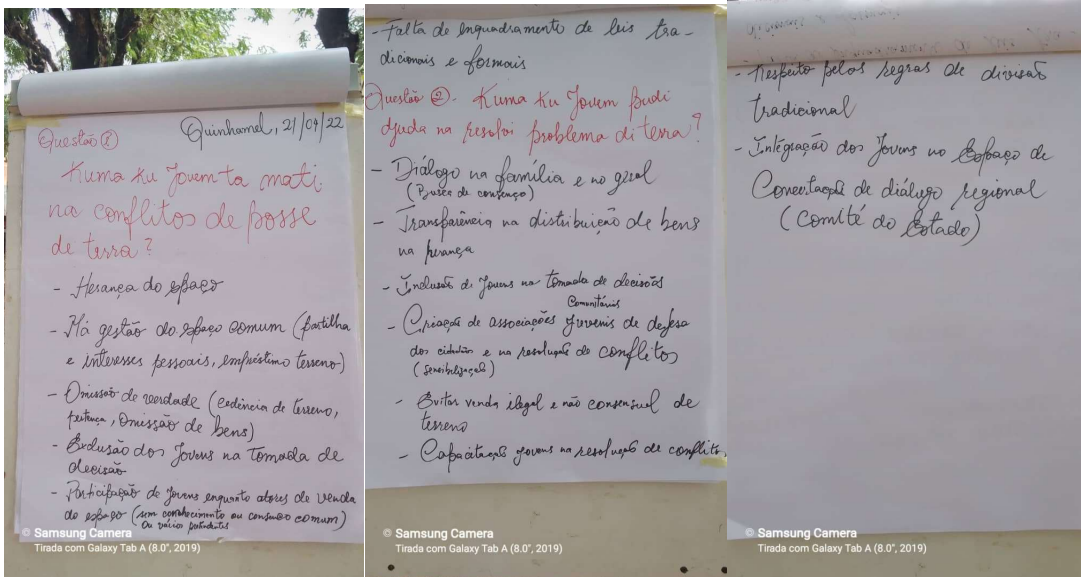 Questão ①
Quinhamel, 21/04/22
Kuma ku Jovem ta mati
na conflitos de posse
de terra?
- Herança do espaço
- Má gestão do espaço comum (partilha
e interesses pessoais, empréstimo terreno)
- Omissão de verdade (cedência de terreno,
pertença, omissão de bens)
- Exclusão dos Jovens na tomada de
decisão
- Participação de Jovens enquanto atores de venda
do espaço (sem conhecimento ou consenso comum)
Ou vários pretendentes
© Samsung Camera
Tirada com Galaxy Tab A (8.0", 2019)
- Falta de enquadramento de leis tra-
dicionais e formais
Questão ②. Kuma ku Jovem pudi
djuda na resolvi problema di terra?
- Diálogo na família e no geral
(Busca de consenço)
- Transparência na distribuição de bens
na herança
- Inclusão de Jovens na tomada de decisões
Comunitárias
- Criação de associações juvenis de defesa
dos cidadãos e na resolução de conflitos
(sensibilização)
- Evitar venda ilegal e não consensual de
terreno
- Capacitação jovens na resolução de conflitos
© Samsung Camera
Tirada com Galaxy Tab A (8.0", 2019)
- Respeito pelos regras de divisão
tradicional
- Integração dos Jovens no Espaço de
Concertação de diálogo regional
(Comité do Estado)
© Samsung Camera
Tirada com Galaxy Tab A (8.0", 2019)